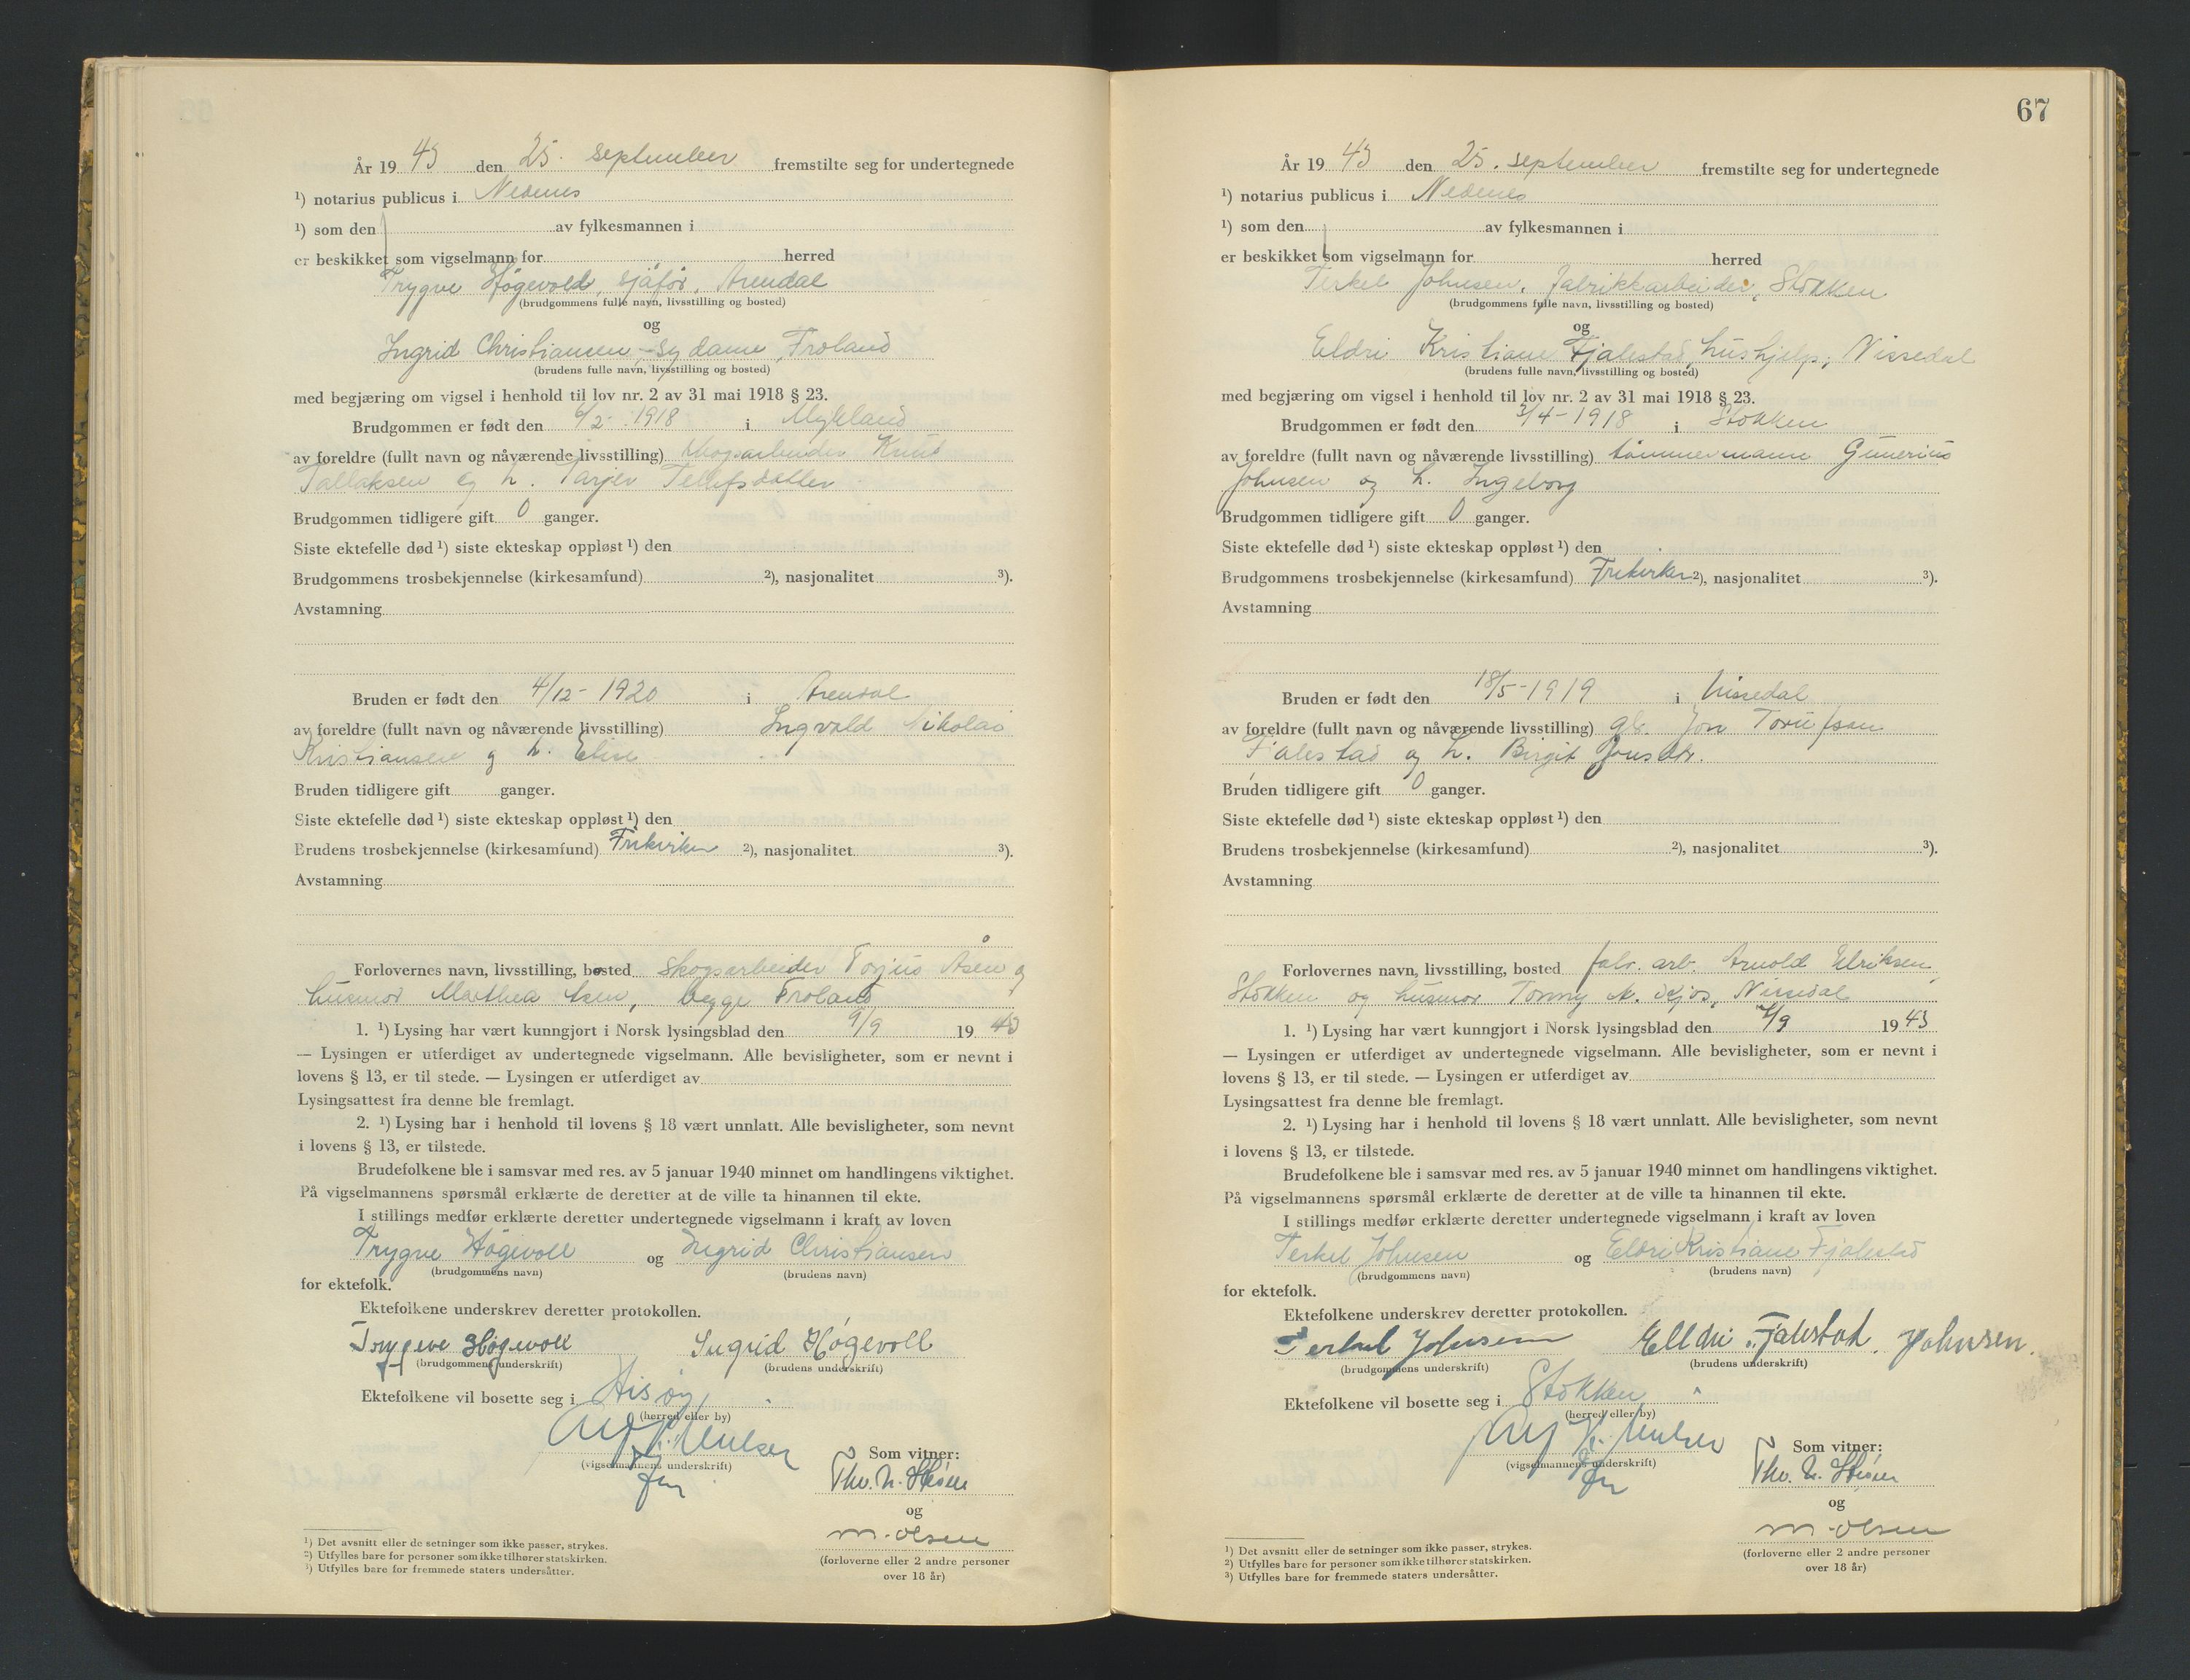 År 19 43 den 25. september fremstilte seg for undertegnede
¹) notarius publicus i Nedenes
¹) som den av fylkesmannen i
er beskikket som vigselmann for herred
Trygve Høgevold, sjåför, Arendal
(brudgommens fulle navn, livsstilling og bosted)
og
Ingrid Christiansen, sydame, Froland
(brudens fulle navn, livsstilling og bosted)
med begjæring om vigsel i henhold til lov nr. 2 av 31 mai 1918 § 23.
Brudgommen er født den 6/2 - 1918 i Mykland
av foreldre (fullt navn og nåværende livsstilling) skogsarbeider Knut
Tallaksen og h. Tarjer Tellefsdatter
Brudgommen tidligere gift 0 ganger.
Siste ektefelle død ¹) siste ekteskap oppløst ¹) den
Brudgommens trosbekjennelse (kirkesamfund) ²), nasjonalitet ³).
Avstamning
Bruden er født den 4/12 - 1920 i Arendal
av foreldre (fullt navn og nåværende livsstilling) Ingvald Nikolai
Kristiansen og h. Elise
Bruden tidligere gift ganger.
Siste ektefelle død ¹) siste ekteskap oppløst ¹) den
Brudens trosbekjennelse (kirkesamfund) Frikirken ²), nasjonalitet ³).
Avstamning
Forlovernes navn, livsstilling, bosted Skogsarbeider Torjus Åsen og
husmor Marthea Åsen, begge Froland
1. ¹) Lysing har vært kunngjort i Norsk lysingsblad den 9/9 19 43
— Lysingen er utferdiget av undertegnede vigselmann. Alle bevisligheter, som er nevnt i
lovens § 13, er til stede. — Lysingen er utferdiget av
Lysingsattest fra denne ble fremlagt.
2. ¹) Lysing har i henhold til lovens § 18 vært unnlatt. Alle bevisligheter, som nevnt
i lovens § 13, er tilstede.
Brudefolkene ble i samsvar med res. av 5 januar 1940 minnet om handlingens viktighet.
På vigselmannens spørsmål erklærte de deretter at de ville ta hinannen til ekte.
I stillings medfør erklærte deretter undertegnede vigselmann i kraft av loven
Trygve Høgevoll og Ingrid Christiansen
(brudgommens navn) (brudens navn)
for ektefolk.
Ektefolkene underskrev deretter protokollen.
Trygve Høgevoll Ingrid Høgevoll
(brudgommens underskrift) (brudens underskrift)
Ektefolkene vil bosette seg i Hisøy
(herred eller by)
(vigselmannens underskrift)
Som vitner:
Tho.
og
M. Olsen
(forloverne eller 2 andre personer
over 18 år)
¹) Det avsnitt eller de setninger som ikke passer, strykes.
²) Utfylles bare for personer som ikke tilhører statskirken.
³) Utfylles bare for fremmede staters undersåtter.
67
År 19 43 den 25. september fremstilte seg for undertegnede
¹) notarius publicus i Nedenes
¹) som den av fylkesmannen i
er beskikket som vigselmann for herred
Terkel Johnsen, fabrikkarbeider, Stokken
(brudgommens fulle navn, livsstilling og bosted)
og
Eldri Kristiane Fjalestad, hushjelp, Nissedal
(brudens fulle navn, livsstilling og bosted)
med begjæring om vigsel i henhold til lov nr. 2 av 31 mai 1918 § 23.
Brudgommen er født den 3/4 - 1918 i Stokken
av foreldre (fullt navn og nåværende livsstilling) tømmermann Gunerius
Johnsen og h. Ingeborg
Brudgommen tidligere gift 0 ganger.
Siste ektefelle død ¹) siste ekteskap oppløst ¹) den
Brudgommens trosbekjennelse (kirkesamfund) Frikirken ²), nasjonalitet ³).
Avstamning
Bruden er født den 18/5 - 1919 i Nissedal
av foreldre (fullt navn og nåværende livsstilling) gbr. Jon
Fjalestad og h. Birgit Jonsdtr.
Bruden tidligere gift 0 ganger.
Siste ektefelle død ¹) siste ekteskap oppløst ¹) den
Brudens trosbekjennelse (kirkesamfund) ²), nasjonalitet ³).
Avstamning
Forlovernes navn, livsstilling, bosted fabr. arb. Arnold Elriksen,
Stokken og husmor Tonny Nissedal
1. ¹) Lysing har vært kunngjort i Norsk lysingsblad den /9 19 43
— Lysingen er utferdiget av undertegnede vigselmann. Alle bevisligheter, som er nevnt i
lovens § 13, er til stede. — Lysingen er utferdiget av
Lysingsattest fra denne ble fremlagt.
2. ¹) Lysing har i henhold til lovens § 18 vært unnlatt. Alle bevisligheter, som nevnt
i lovens § 13, er tilstede.
Brudefolkene ble i samsvar med res. av 5 januar 1940 minnet om handlingens viktighet.
På vigselmannens spørsmål erklærte de deretter at de ville ta hinannen til ekte.
I stillings medfør erklærte deretter undertegnede vigselmann i kraft av loven
Terkel Johnsen og Eldri Kristiane Fjalestad
(brudgommens navn) (brudens navn)
for ektefolk.
Ektefolkene underskrev deretter protokollen.
Terkel Johnsen Elldri Fjalestad. Johnsen.
(brudgommens underskrift) (brudens underskrift)
Ektefolkene vil bosette seg i Stokken
(herred eller by)
(vigselmannens underskrift)
Som vitner:
Tho.
og
M. Olsen
(forloverne eller 2 andre personer
over 18 år)
¹) Det avsnitt eller de setninger som ikke passer, strykes.
²) Utfylles bare for personer som ikke tilhører statskirken.
³) Utfylles bare for fremmede staters undersåtter.